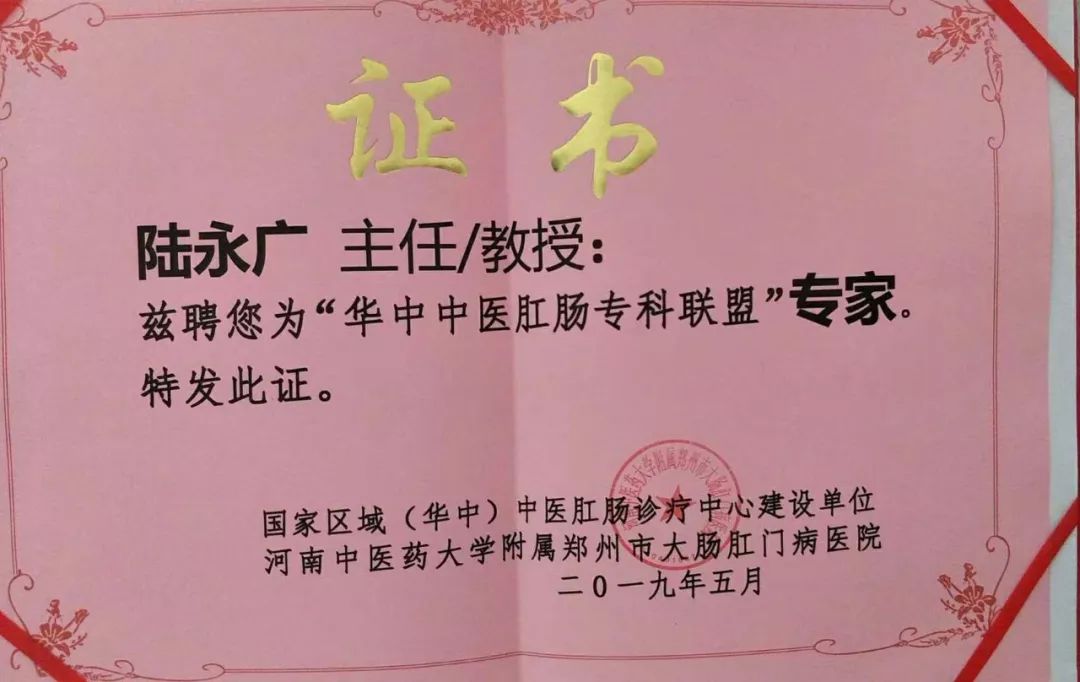 证书
陆永广 主任/教授：
兹聘您为“华中中医肛肠专科联盟”专家。
特发此证。
国家区域（华中）中医肛肠诊疗中心建设单位
河南中医药大学附属郑州市大肠肛门病医院
二０一九年五月